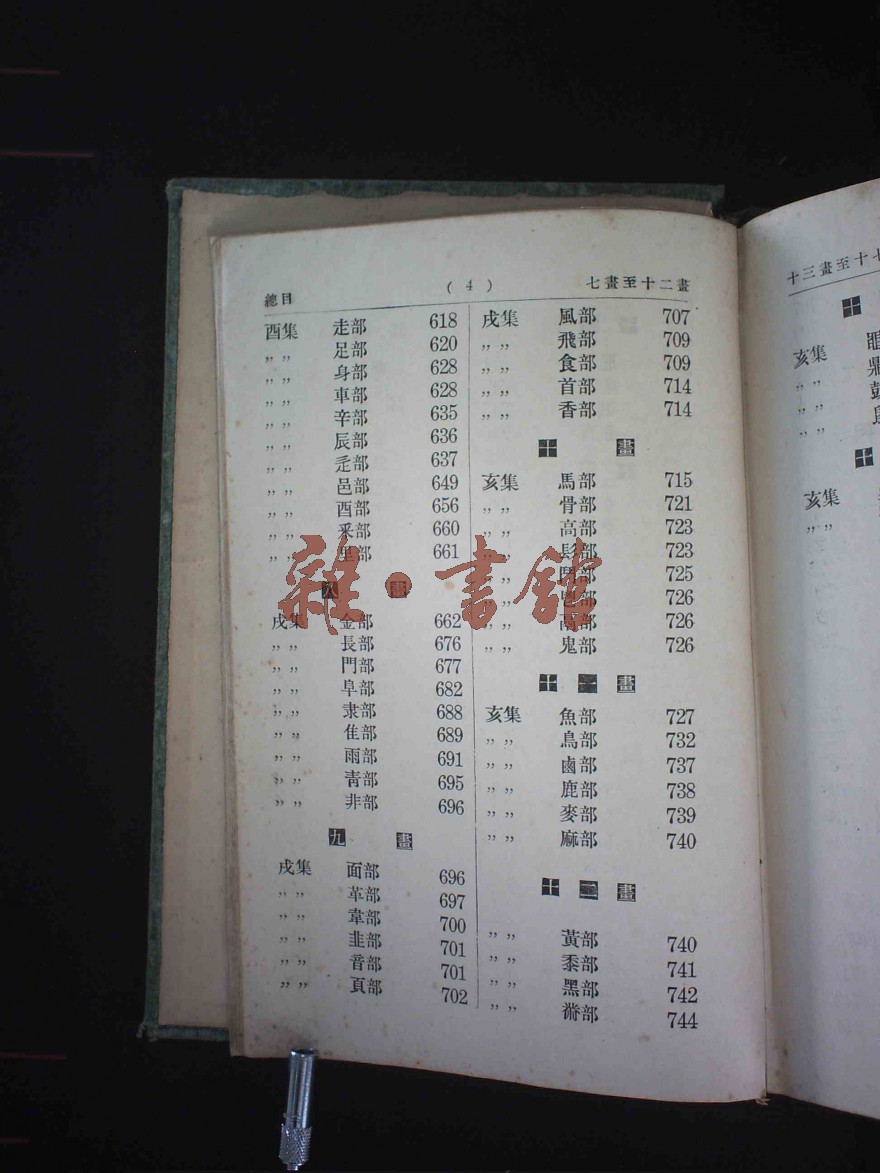 總目 ( 4 ) 七畫至十二畫
酉集 走部 618
〃〃 足部 620
〃〃 身部 628
〃〃 車部 628
〃〃 辛部 635
〃〃 辰部 636
〃〃 辵部 637
〃〃 邑部 649
〃〃 酉部 656
〃〃 釆部 660
〃〃 里部 661
八畫
戌集 金部 662
〃〃 長部 676
〃〃 門部 677
〃〃 阜部 682
〃〃 隶部 688
〃〃 隹部 689
〃〃 雨部 691
〃〃 靑部 695
〃〃 非部 696
九畫
戌集 面部 696
〃〃 革部 697
〃〃 韋部 700
〃〃 韭部 701
〃〃 音部 701
〃〃 頁部 702
戌集 風部 707
〃〃 飛部 709
〃〃 食部 709
〃〃 首部 714
〃〃 香部 714
十畫
亥集 馬部 715
〃〃 骨部 721
〃〃 高部 723
〃〃 髟部 723
〃〃 鬥部 725
〃〃 鬯部 726
〃〃 鬲部 726
〃〃 鬼部 726
十一畫
亥集 魚部 727
〃〃 鳥部 732
〃〃 鹵部 737
〃〃 鹿部 738
〃〃 麥部 739
〃〃 麻部 740
十二畫
〃〃 黃部 740
〃〃 黍部 741
〃〃 黑部 742
〃〃 黹部 744
雜·書館
十三畫至十七
十
亥集
〃〃 鼎
〃〃 鼓
〃〃
十
亥集
〃〃